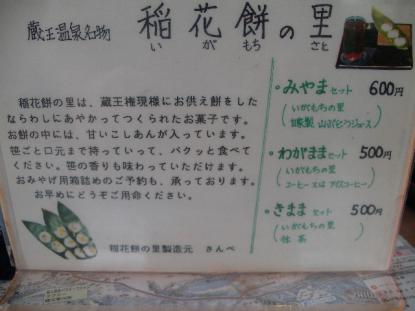 蔵王温泉名物 稲花餅の里
いがもち さと
稲花餅の里は、蔵王権現様にお供え餅をした
ならわしにあやかってつくられたお菓子です。
お餅の中には、甘いこしあんが入っています。
笹ごと口元まで持っていって、パクッと食べて
ください。笹の香りも味わっていただけます。
おみやげ用箱詰めのご予約も、承っております。
お早めにどうぞご用命ください。
稲花餅の里製造元 さんべ
・みやまセット 600円
(いがもちの里
自家製 山ぶどうジュース)
・わがままセット 500円
(いがもちの里
コーヒー又は アイスコーヒー)
・きままセット 500円
(いがもちの里
抹茶)